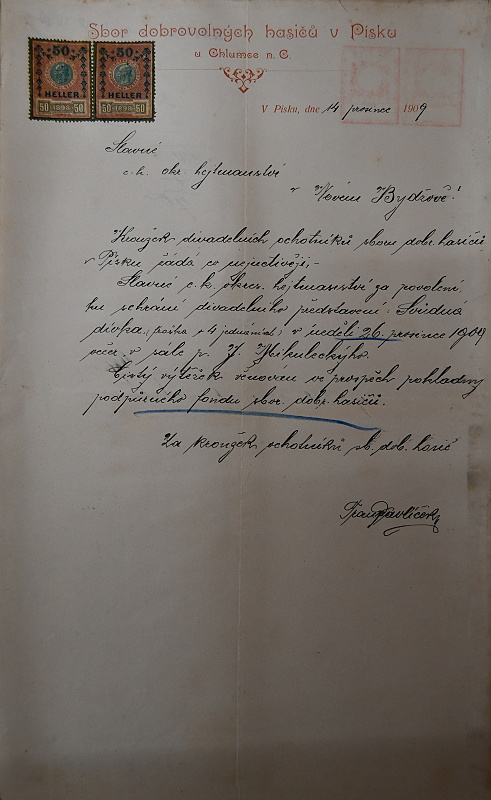 Sbor dobrovolných hasičů v Písku
u Chlumce n. C.
50 50
HELLER HELLER
50 1898 50 50 1898 50
V Písku, dne 14 prosince 1909
Slavné
c. k. okr. hejtmanství
v Novém Bydžově!
Kroužek divadelních ochotníků sboru dobr. hasičů
v Písku žádá co nejuctivěji,-
Slavné c. k. okres. hejtmanství za povolení
ku sehrání divadelního představení:
dívka. (fraška o 4 jednáních) v neděli 26. prosince 1909
večer v sále p. J. Mikuleckého.
Čistý výtěžek věnován ve prospěch pokladny
podpůrného fondu sbor. dobr. hasičů.
Za kroužek ochotníků sb. dob. hasič
Pavlíček